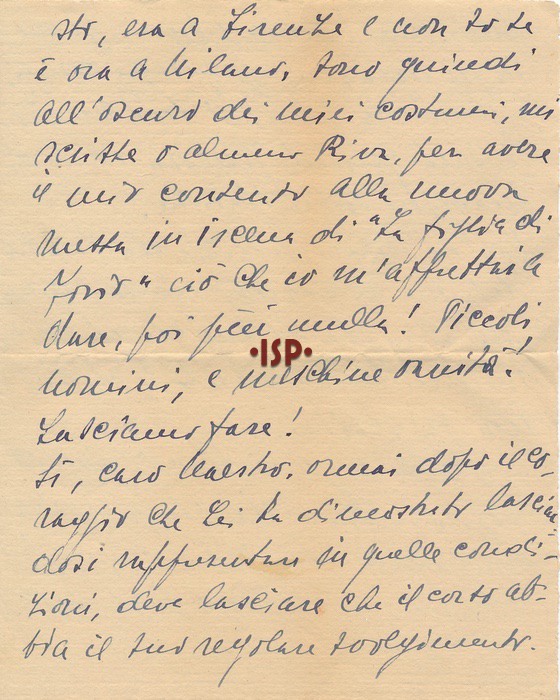 sto, era a Firenze e non so se
è ora a Milano, sono quindi
all'oscuro dei miei costumi, mi
scrisse o almeno Riva, per avere
il mio contento alla nuova
messa in iscena di "La figlia di
Jorio" ciò che io m'affrettai a
dare, poi più nulla! Piccoli
•ISP•
uomini, e meschine vanità!
Lasciamo fare!
Sì, caro Maestro, ormai dopo il co-
raggio che Lei ha dimostrato lascian
dosi rappresentare in quelle condi-
zioni, deve lasciare che il corso ab-
bia il suo regolare svolgimento.